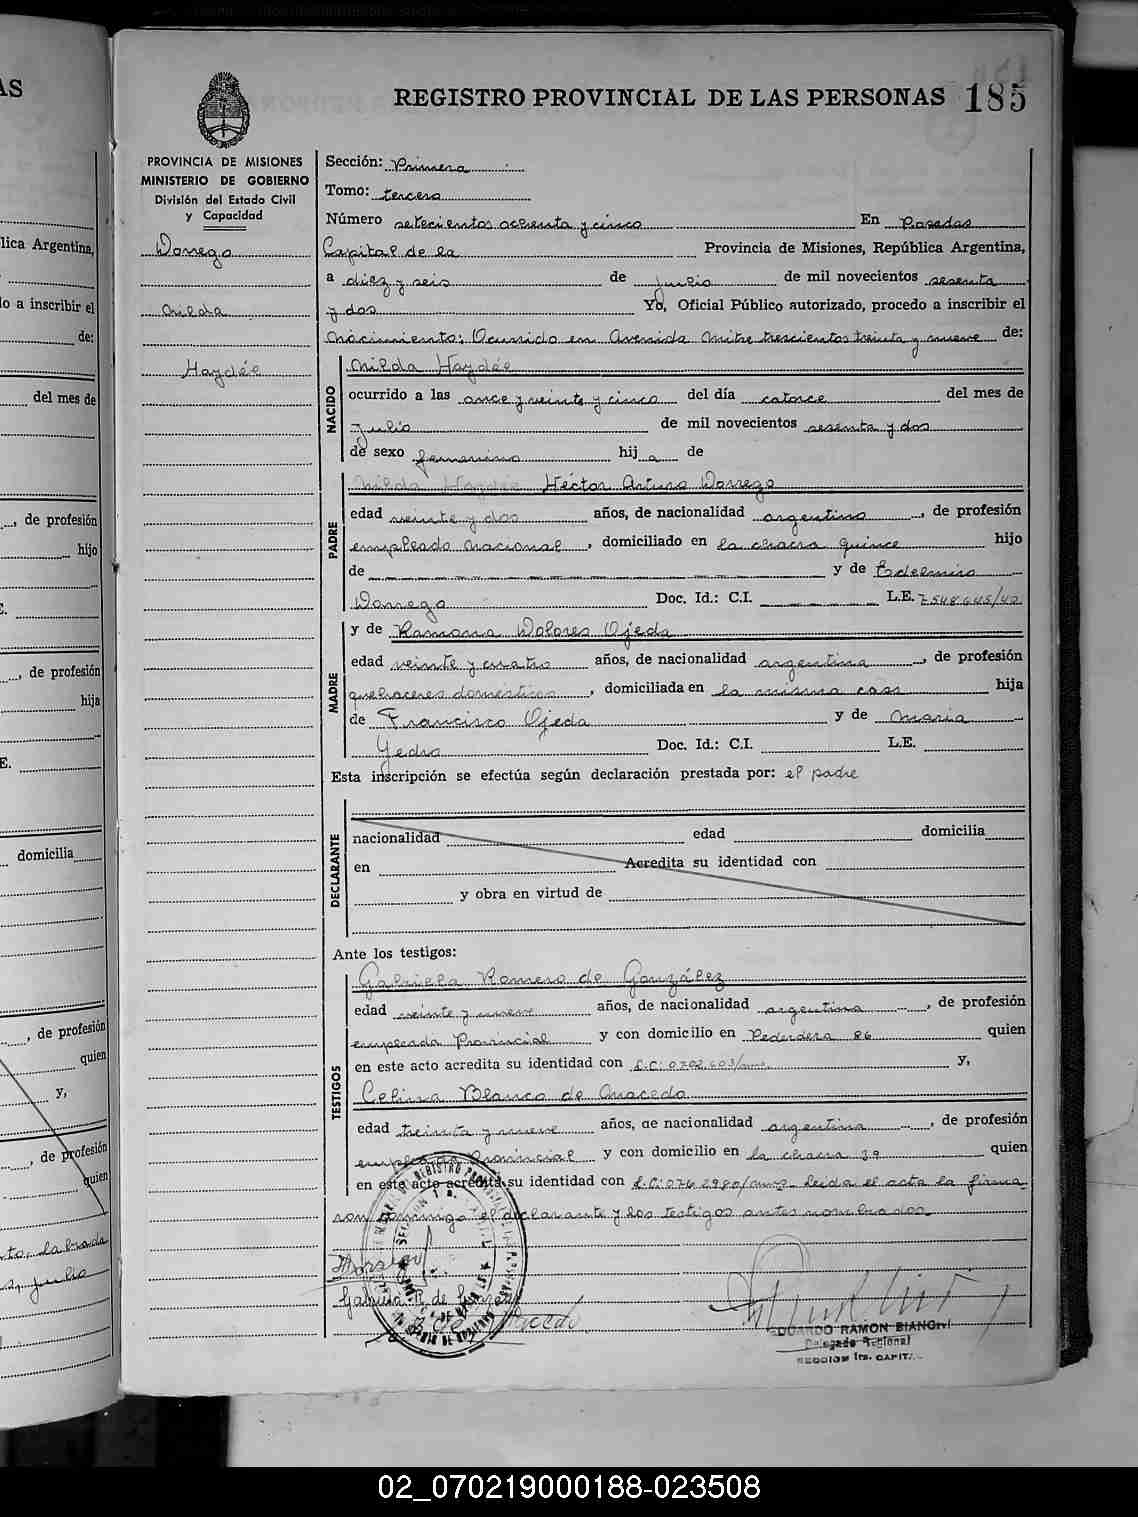 REGISTRO PROVINCIAL DE LAS PERSONAS 185
PROVINCIA DE MISIONES
MINISTERIO DE GOBIERNO
División del Estado Civil
y Capacidad
Dorrego
Nilda
Haydée
Sección: Primera
Tomo: tercero
Número setecientos ochenta y cinco En Posadas
Capital de la Provincia de Misiones, República Argentina,
a diez y seis de julio de mil novecientos sesenta
y dos Yo, Oficial Público autorizado, procedo a inscribir el
nacimiento: Ocurrido en Avenida Mitre trescientos treinta y nueve de:
NACIDO
Nilda Haydée
ocurrido a las once y veinte y cinco del día catorce del mes de
julio de mil novecientos sesenta y dos
de sexo femenino hija de
PADRE
Nilda Haydée Héctor Arturo Dorrego
edad veinte y dos años, de nacionalidad argentino, de profesión
empleado nacional, domiciliado en la chacra quince hijo
de y de Edelmiro
Dorrego Doc. Id.: C.I. L.E. 7548645/40
MADRE
y de Ramona Dolores Ojeda
edad veinte y cuatro años, de nacionalidad argentina, de profesión
quehaceres domésticos, domiciliada en la misma casa hija
de Francisco Ojeda y de María
Yedro Doc. Id.: C.I. L.E.
Esta inscripción se efectúa según declaración prestada por: el padre
DECLARANTE
nacionalidad edad domicilia
en Acredita su identidad con
y obra en virtud de
Ante los testigos:
TESTIGOS
Gabriela Romero de González
edad veinte y nueve años, de nacionalidad argentina, de profesión
empleada Provincial y con domicilio en 86 quien
en este acto acredita su identidad con L.C: y,
Celina Blanco de Macedo
edad treinta y nueve años, de nacionalidad argentina, de profesión
empleada Provincial y con domicilio en la chacra 39 quien
en este acto acredita su identidad con L.C: Leída el acta la firma
ron conmigo el declarante y los testigos antes nombrados
Gabriela R. de González
B de Macedo
EDUARDO RAMON BIANCHI
Delegado Regional
SECCION 1ra. CAPITAL
lica Argentina,
lo a inscribir el
de:
del mes de
, de profesión
hijo
E.
, de profesión
hija
E.
domicilia
, de profesión
quien
y,
, de profesión
quien
julio
02_070219000188-023508